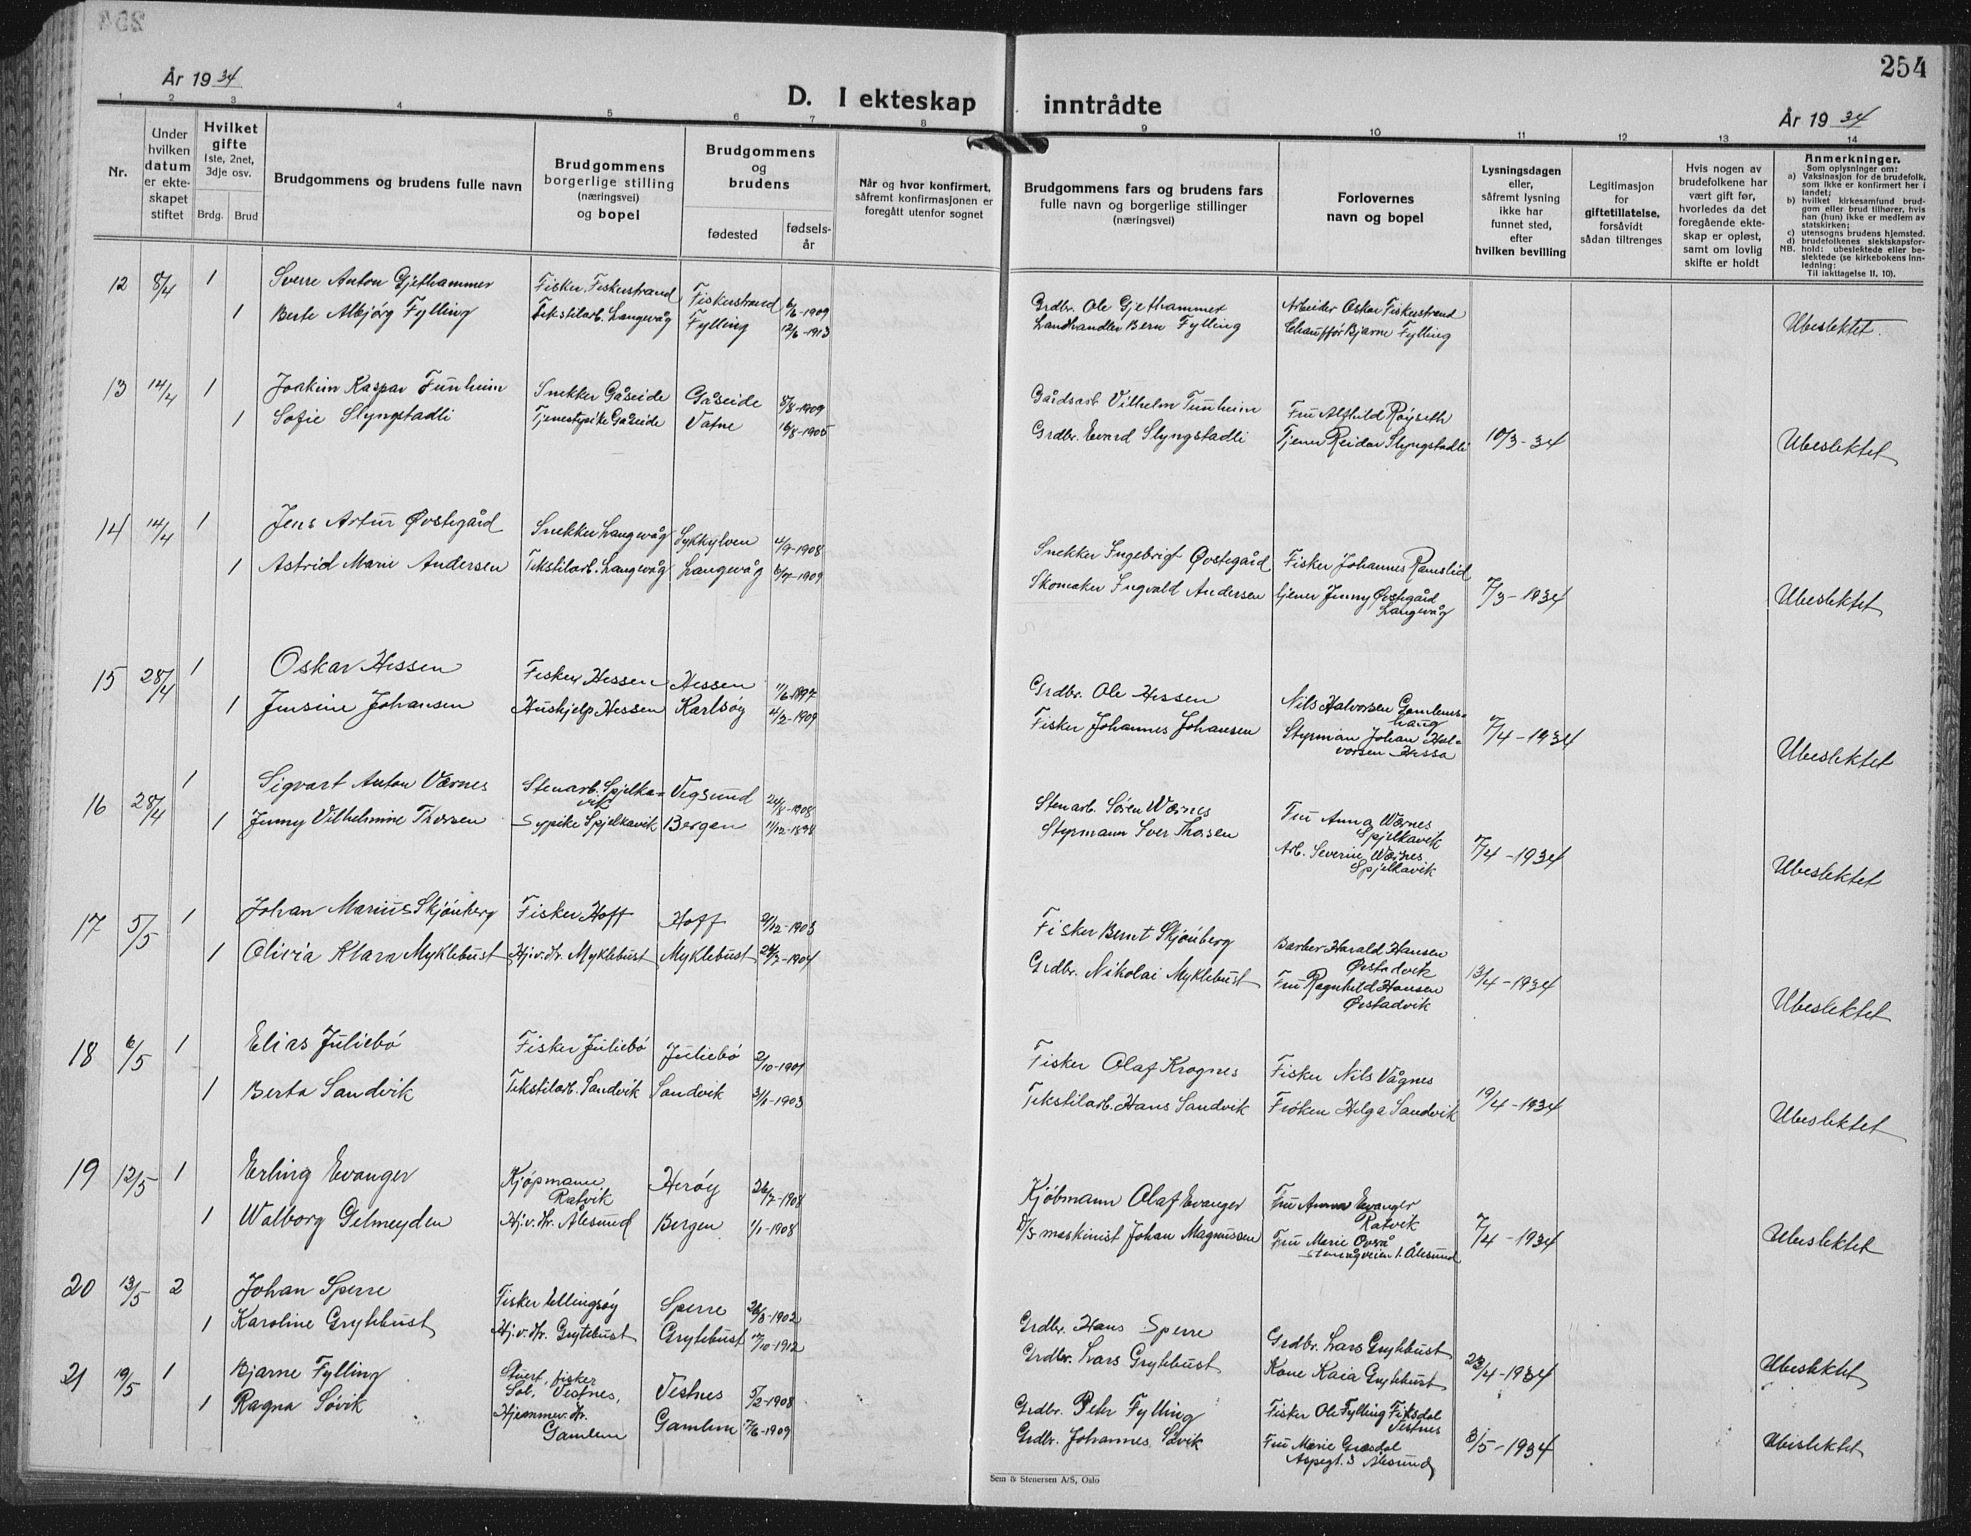 254
År 1934
D. I ekteskap inntrådte
År 1934
1 2 3 4 5 6 7 8 9 10 11 12 13 14
Nr.
Under
hvilken
datum
er ekte-
skapet
stiftet
Hvilket
gifte
1ste, 2net,
3dje osv.
Brdg. Brud
Brudgommens og brudens fulle navn
Brudgommens
borgerlige stilling
(næringsvei)
og bopel
Brudgommens
og
brudens
fødested
fødsels-
år
Når og hvor konfirmert,
såfremt konfirmasjonen er
foregått utenfor sognet
Brudgommens fars og brudens fars
fulle navn og borgerlige stillinger
(næringsvei)
Forlovernes
navn og bopel
Lysningsdagen
eller,
såfremt lysning
ikke har
funnet sted,
efter
hvilken bevilling
Legitimasjon
for
giftetillatelse,
forsåvidt
sådan tiltrenges
Hvis nogen av
brudefolkene har
vært gift før,
hvorledes da det
foregående ekte-
skap er opløst,
samt om lovlig
skifte er holdt
Anmerkninger.
Som oplysninger om:
a) Vaksinasjon for de brudefolk,
som ikke er konfirmert her i
landet;
b) hvilket kirkesamfund brud-
gom eller brud tilhører, hvis
han (hun) ikke er medlem av
statskirken;
c) utensogns brudens hjemsted.
d) brudefolkenes slektskapsfor-
NB. hold: ubeslektede eller be-
slektede (se kirkebokens Inn-
ledning:
Til iakttagelse II, 10).
12 8/4 1 Sverre Anton Gjethammer Fisker, Fiskerstrand Fiskerstrand 6/6-1909 Grdbr. Ole Gjethammer Arbeider Oskar Fiskerstrand
1 Berte Albjørg Fylling Tekstilarb. Langevåg Fylling 12/6-1913 Landhandler Bern Fylling Chauffør Bjarne Fylling Ubeslektet.
13 14/4 1 Joakim Kaspar Tunheim Snekker Gåseide Gåseide 8/8-1909 Gårdsarb. Vilhelm Tunheim Fru Alfhild Røyseth
1 Sofie Slyngstadli Tjenestepike Gåseide Vatne 16/8-1905 Grdbr. Evard Slyngstadli Tjener Reidar Slyngstadli 10/3-34 Ubeslektet
14 14/4 1 Jens Artur Øvstegård Snekker Langevåg Sykkylven 4/9-1908 Snekker Ingebrigt Øvstegård Fisker Johannes Ramslid
1 Astrid Marie Andersen Tekstilarb. Langevåg Langevåg 6/7-1909 Skomaker Ingvald Andersen tjener Jenny Øvstegård
Langevåg 7/3-1934 Ubeslektet
15 28/4 1 Oskar Hessen Fisker Hessen Hessen 11/6-1897 Grdbr. Ole Hessen Nils Halvorsen Gamlems-
haug
1 Jensine Johansen Hushjelp Hessen Karlsøy 4/3-1909 Fisker Johannes Johansen Styrman Johan Hal-
vorsen Hessa 7/4-1934 Ubeslektet
16 28/4 1 Sigvart Anton Værnes Stenarb. Spjelka-
vik Vegsund 24/8-1908 Stenarb. Søren Wærnes Fru Anna Wærnes
Spjelkavik
1 Jenny Vilhelmine Thorsen Sypike Spjelkavik Bergen 11/12-1898 Styrmann Iver Thorsen Arb. Severin Wærnes
Spjelkavik 7/4-1934 Ubeslektet
17 5/5 1 Johan Marius Skjönberg Fisker Hoff Hoff 9/12-1903 Fisker Bernt Skjönberg Barber Harald Hansen
Ørstadvik
1 Olivia Klara Myklebust Hj.v.Hr. Myklebust Myklebust 24/7-1904 Grdbr. Nikolai Myklebust Fru Ragnhild Hansen
Ørstadvik 13/4-1934 Ubeslektet
18 6/5 1 Elias Juliebö Fisker Juliebö Juliebö 2/10-1901 Fisker Olaf Krognes Fisker Nils Vågnes
1 Berta Sandvik Tekstilarb. Sandvik Sandvik 3/1-1903 Tekstilarb. Hans Sandvik Frøken Helga Sandvik 19/4-1934 Ubeslektet
19 12/5 1 Erling Evanger Kjøpmann
Ratvik Herøy 26/7-1908 Kjøbmann Olaf Evanger Fru Anna Evanger
Ratvik
1 Walborg Gelmeyden Hj.v.Hr. Ålesund Bergen 1/1-1908 D/S maskinist Johan Magnussen Fru Marie Overå
Stenvågveien 1. Ålesund 7/4-1934 Ubeslektet
20 13/5 2 Johan Sperre Fisker Ellingsøy Sperre 26/8-1902 Grdbr. Hans Sperre Grdbr. Lars Grytebust
1 Karoline Grytebust Hj.v.Hr. Grytebust Grytebust 17/10-1912 Grdbr. Lars Grytebust Kone Kaia Grytebust 23/4-1934 Ubeslektet
21 19/5 1 Bjarne Fylling Stuert, fisker
Sol, Vestnes, Vestnes 5/2-1908 Grdbr. Peter Fylling Fisker Ole Fylling Fiksdal
Vestnes
1 Ragna Søvik Hjemmev. Hr.
Gamlem Gamlem 17/6-1909 Grdbr. Johannes Søvik Fru Marie Giæsdal
Aspegt. 3 Ålesund 3/5-1934 Ubeslektet
Sem & Stenersen A/S, Oslo